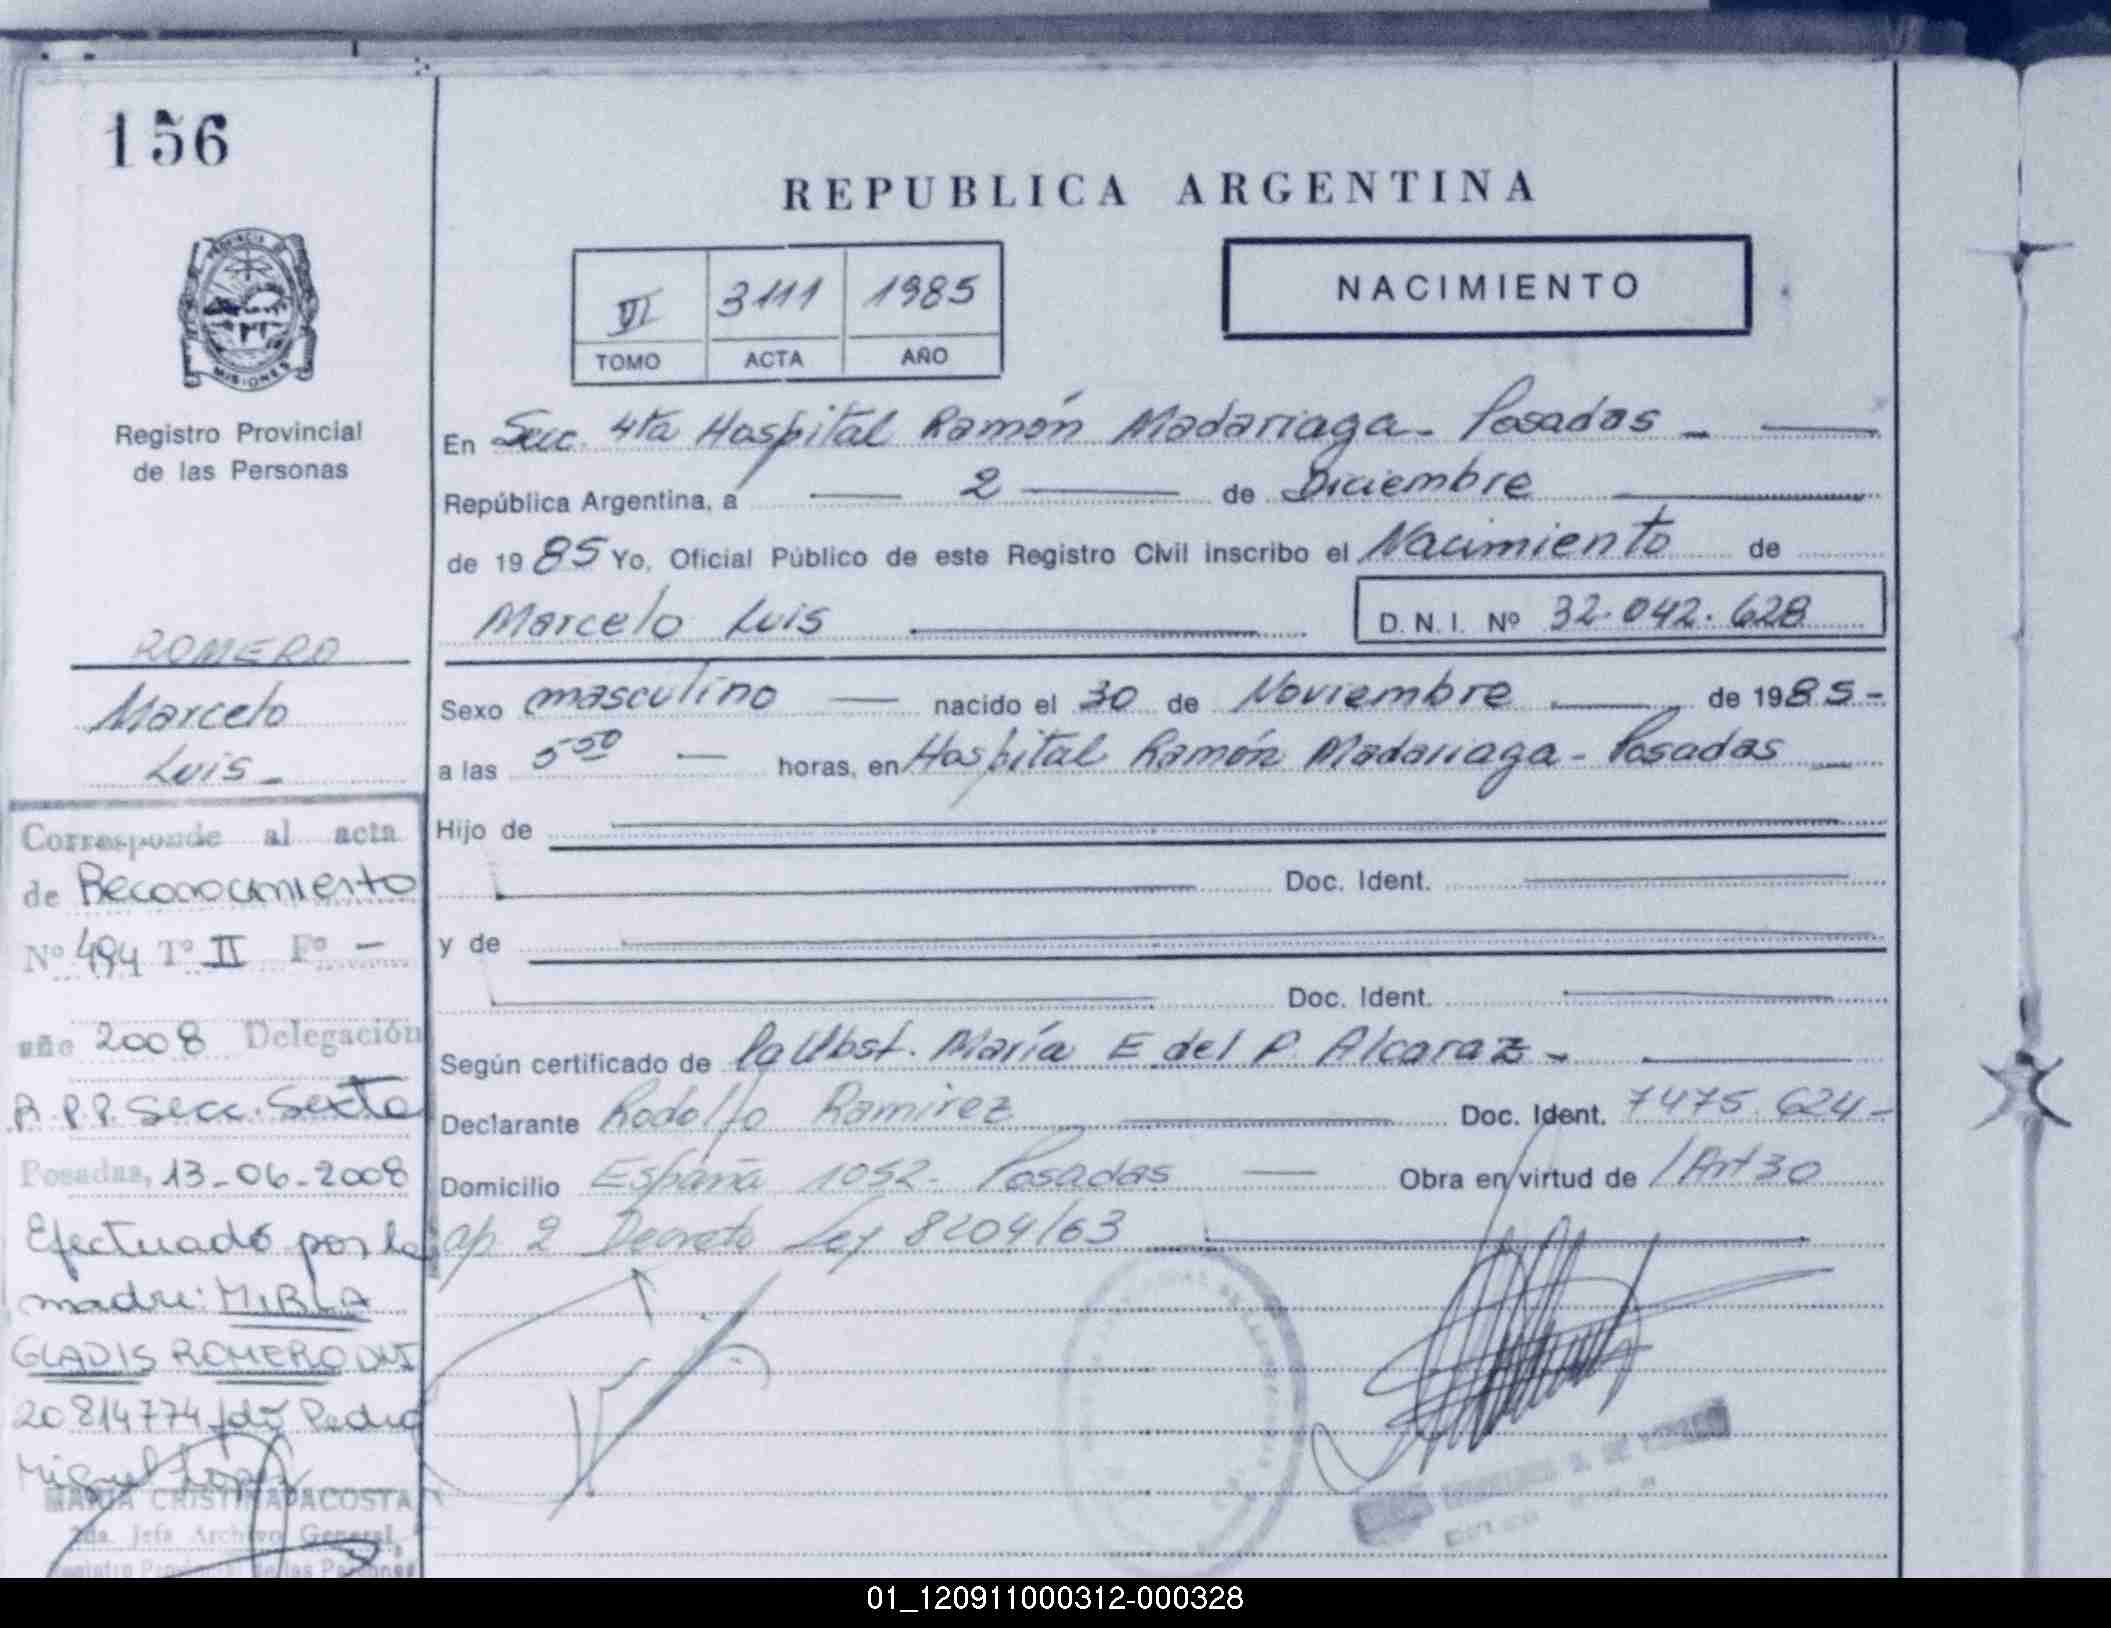 156
REPUBLICA ARGENTINA
PROVINCIA DE MISIONES
VI 3111 1985
TOMO ACTA AÑO
NACIMIENTO
Registro Provincial
de las Personas
En Secc. 4ta Hospital Ramón Madariaga - Posadas -
República Argentina, a 2 de Diciembre
de 1985 Yo, Oficial Público de este Registro Civil inscribo el Nacimiento de
Marcelo Luis D.N.I. Nº 32.042.628
ROMERO
Marcelo
Luis -
Sexo masculino nacido el 30 de Noviembre de 1985-
a las 5 50 horas, en Hospital Ramón Madariaga - Posadas
Hijo de
Doc. Ident.
y de
Doc. Ident.
Según certificado de la Obst. María E del P. Alcaraz -
Declarante Rodolfo Ramirez Doc. Ident. 7475.624-
Domicilio España 1052- Posadas Obra en virtud de /Art 30
ap 2 Decreto Ley 8204/63
Corresponde al acta
de Reconocimiento
Nº 494 Tº II Fº -
año 2008 Delegación
R.P.P. Secc. Sexta
Posadas, 13-06-2008
Efectuado por la
madre: MIRLA
GLADIS ROMERO DNI
20814774 Pedro
Miguel López
MARIA CRISTINA DACOSTA
2da. Jefa Archivo General,
Registro Provincial de las Personas
01_120911000312-000328